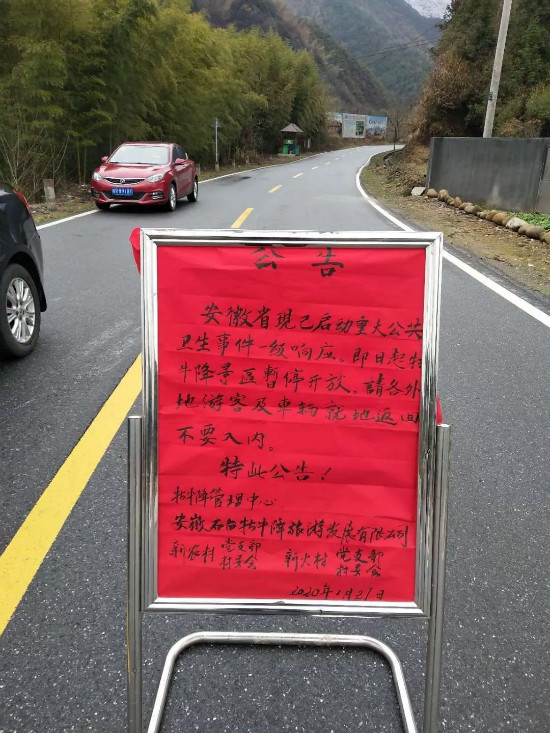 公告
安徽省現已启动重大公共
卫生事件一级响应。即日起牯
牛降景区暫停开放。請各外
地游客及車輛就地返回
不要入内。
特此公告！
牯牛降管理中心
安徽石台牯牛降旅游发展有限公司
新农村 党支部 村委会 新火村 党支部 村委会
2020年1月27日